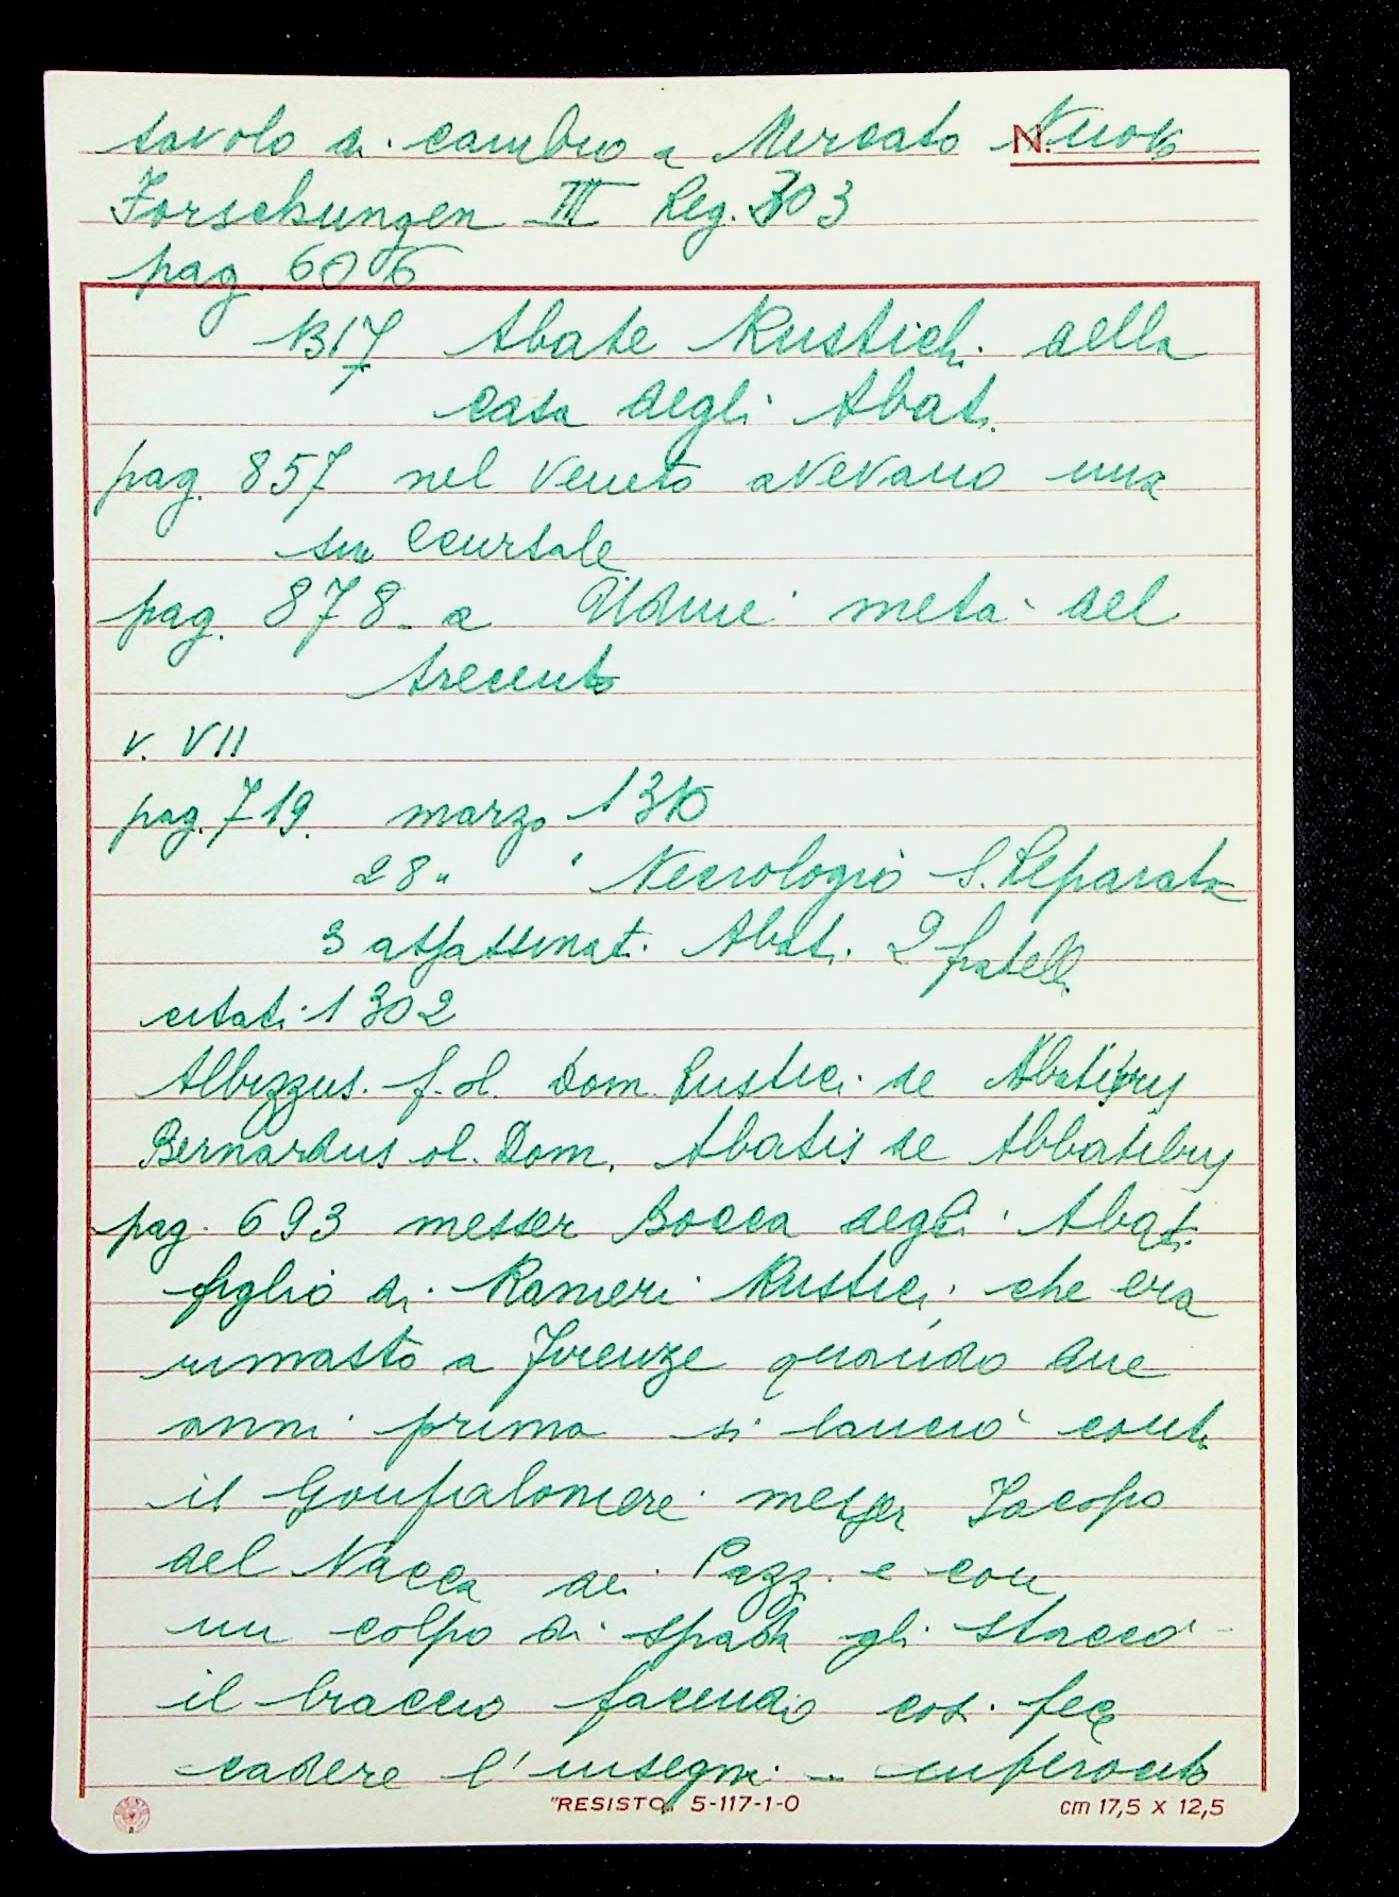 tavolo di cambio a Mercato N. Nuovo
Forschungen III Reg. 303
pag. 606
1317 Abate Rustichi della
casa degli Abati
pag. 857 nel Veneto avevano una
su ccursale
pag. 878 - a Udine metà del
trecento
v. VII
pag. 719. marzo 1310
28 " " Necrologio S. Reparata
3 assassinati Abati 2 fratelli
citati 1302
Albizzus f. d. Dom. Rustici de Abatibus
Bernardus d. Dom. Abatis de Abbatibus
pag. 693 messer Bocca degli Abati
figlio di Ranieri Rustici che era
rimasto a Firenze quando due
anni prima si lanciò contr
il Gonfaloniere messer Jacopo
del Nacca dei Pazzi e con
un colpo di spada gli staccò
il braccio facendo così fece
cadere l'insegna - inferocito
"RESISTO" 5-117-1-0 cm 17,5 x 12,5